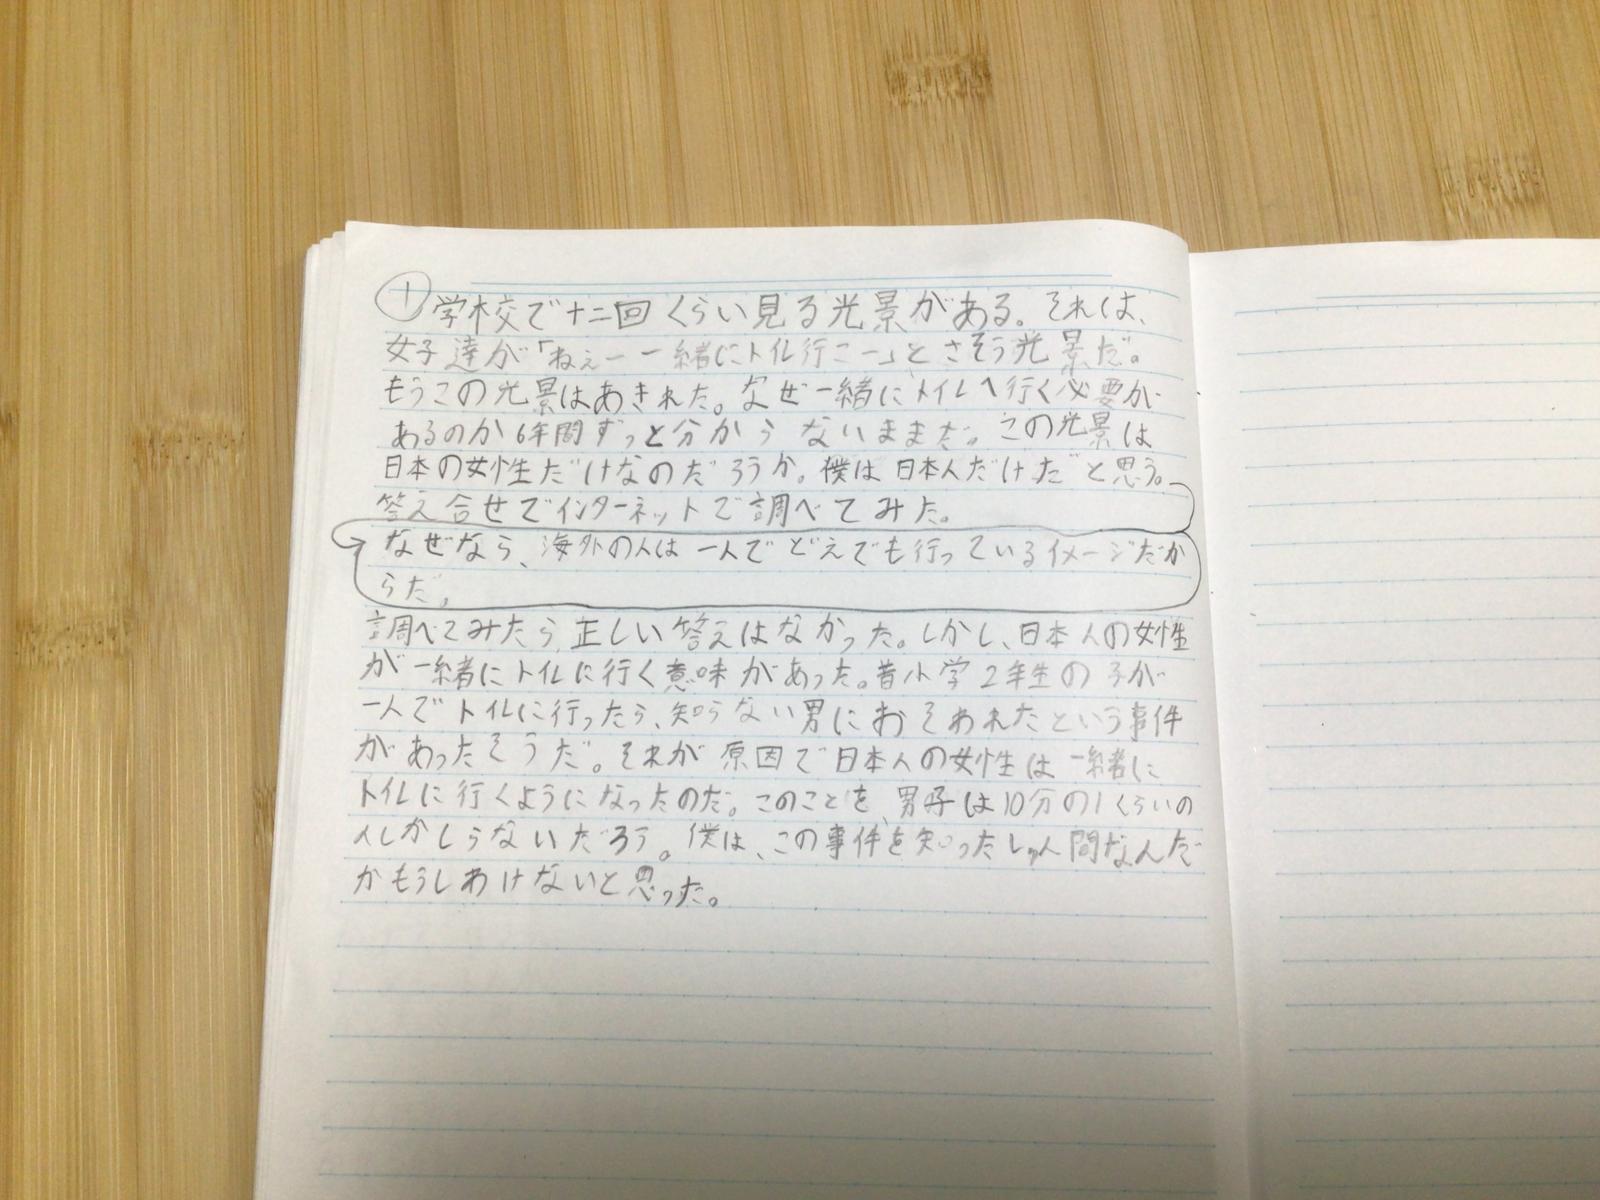 ① 学校で十二回くらい見る光景がある。それは、
女子達が「ねぇー一緒にトイレ行こー」とさそう光景だ。
もうこの光景はあきれた。なぜ一緒にトイレへ行く必要が
あるのか6年間ずっと分からないままだ。この光景は
日本の女性だけなのだろうか。僕は日本人だけだと思う。
答え合せでインターネットで調べてみた。
なぜなら、海外の人は一人でどえでも行っているイメージだか
らだ。
調べてみたら、正しい答えはなかった。しかし、日本人の女性
が一緒にトイレに行く意味があった。昔小学2年生の子が
一人でトイレに行ったら、知らない男におそわれたという事件
があったそうだ。それが原因で日本人の女性は一緒に
トイレに行くようになったのだ。このことを、男子は10分の1くらいの
人しかしらないだろう。僕は、この事件を知ったしゅん間なんだ
かもうしわけないと思った。